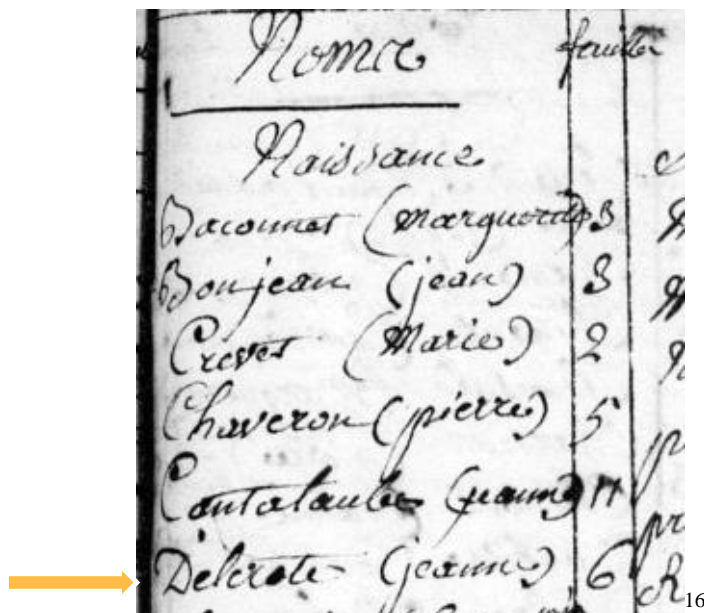 Noms feuillet
Naissance
Baconnet (Marguerite) 3
Bonjean (jean) 3
Crevet (Marie) 2
Chaveron (pierre) 5
Cantalaube (jeanne) 11
Delcrote (jeanne) 6
16